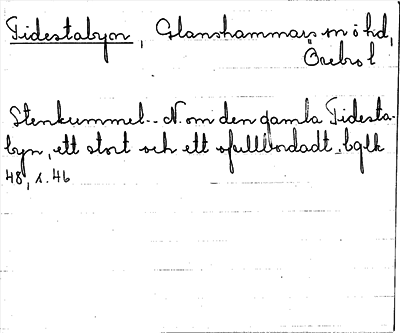 Tidestabyn, Glanshammars sn o hd,
Örebro l
Stenkummel.. N om den gamla Tidesta-
byn, ett stort och ett ofullbordadt. bglk
48, s. 46